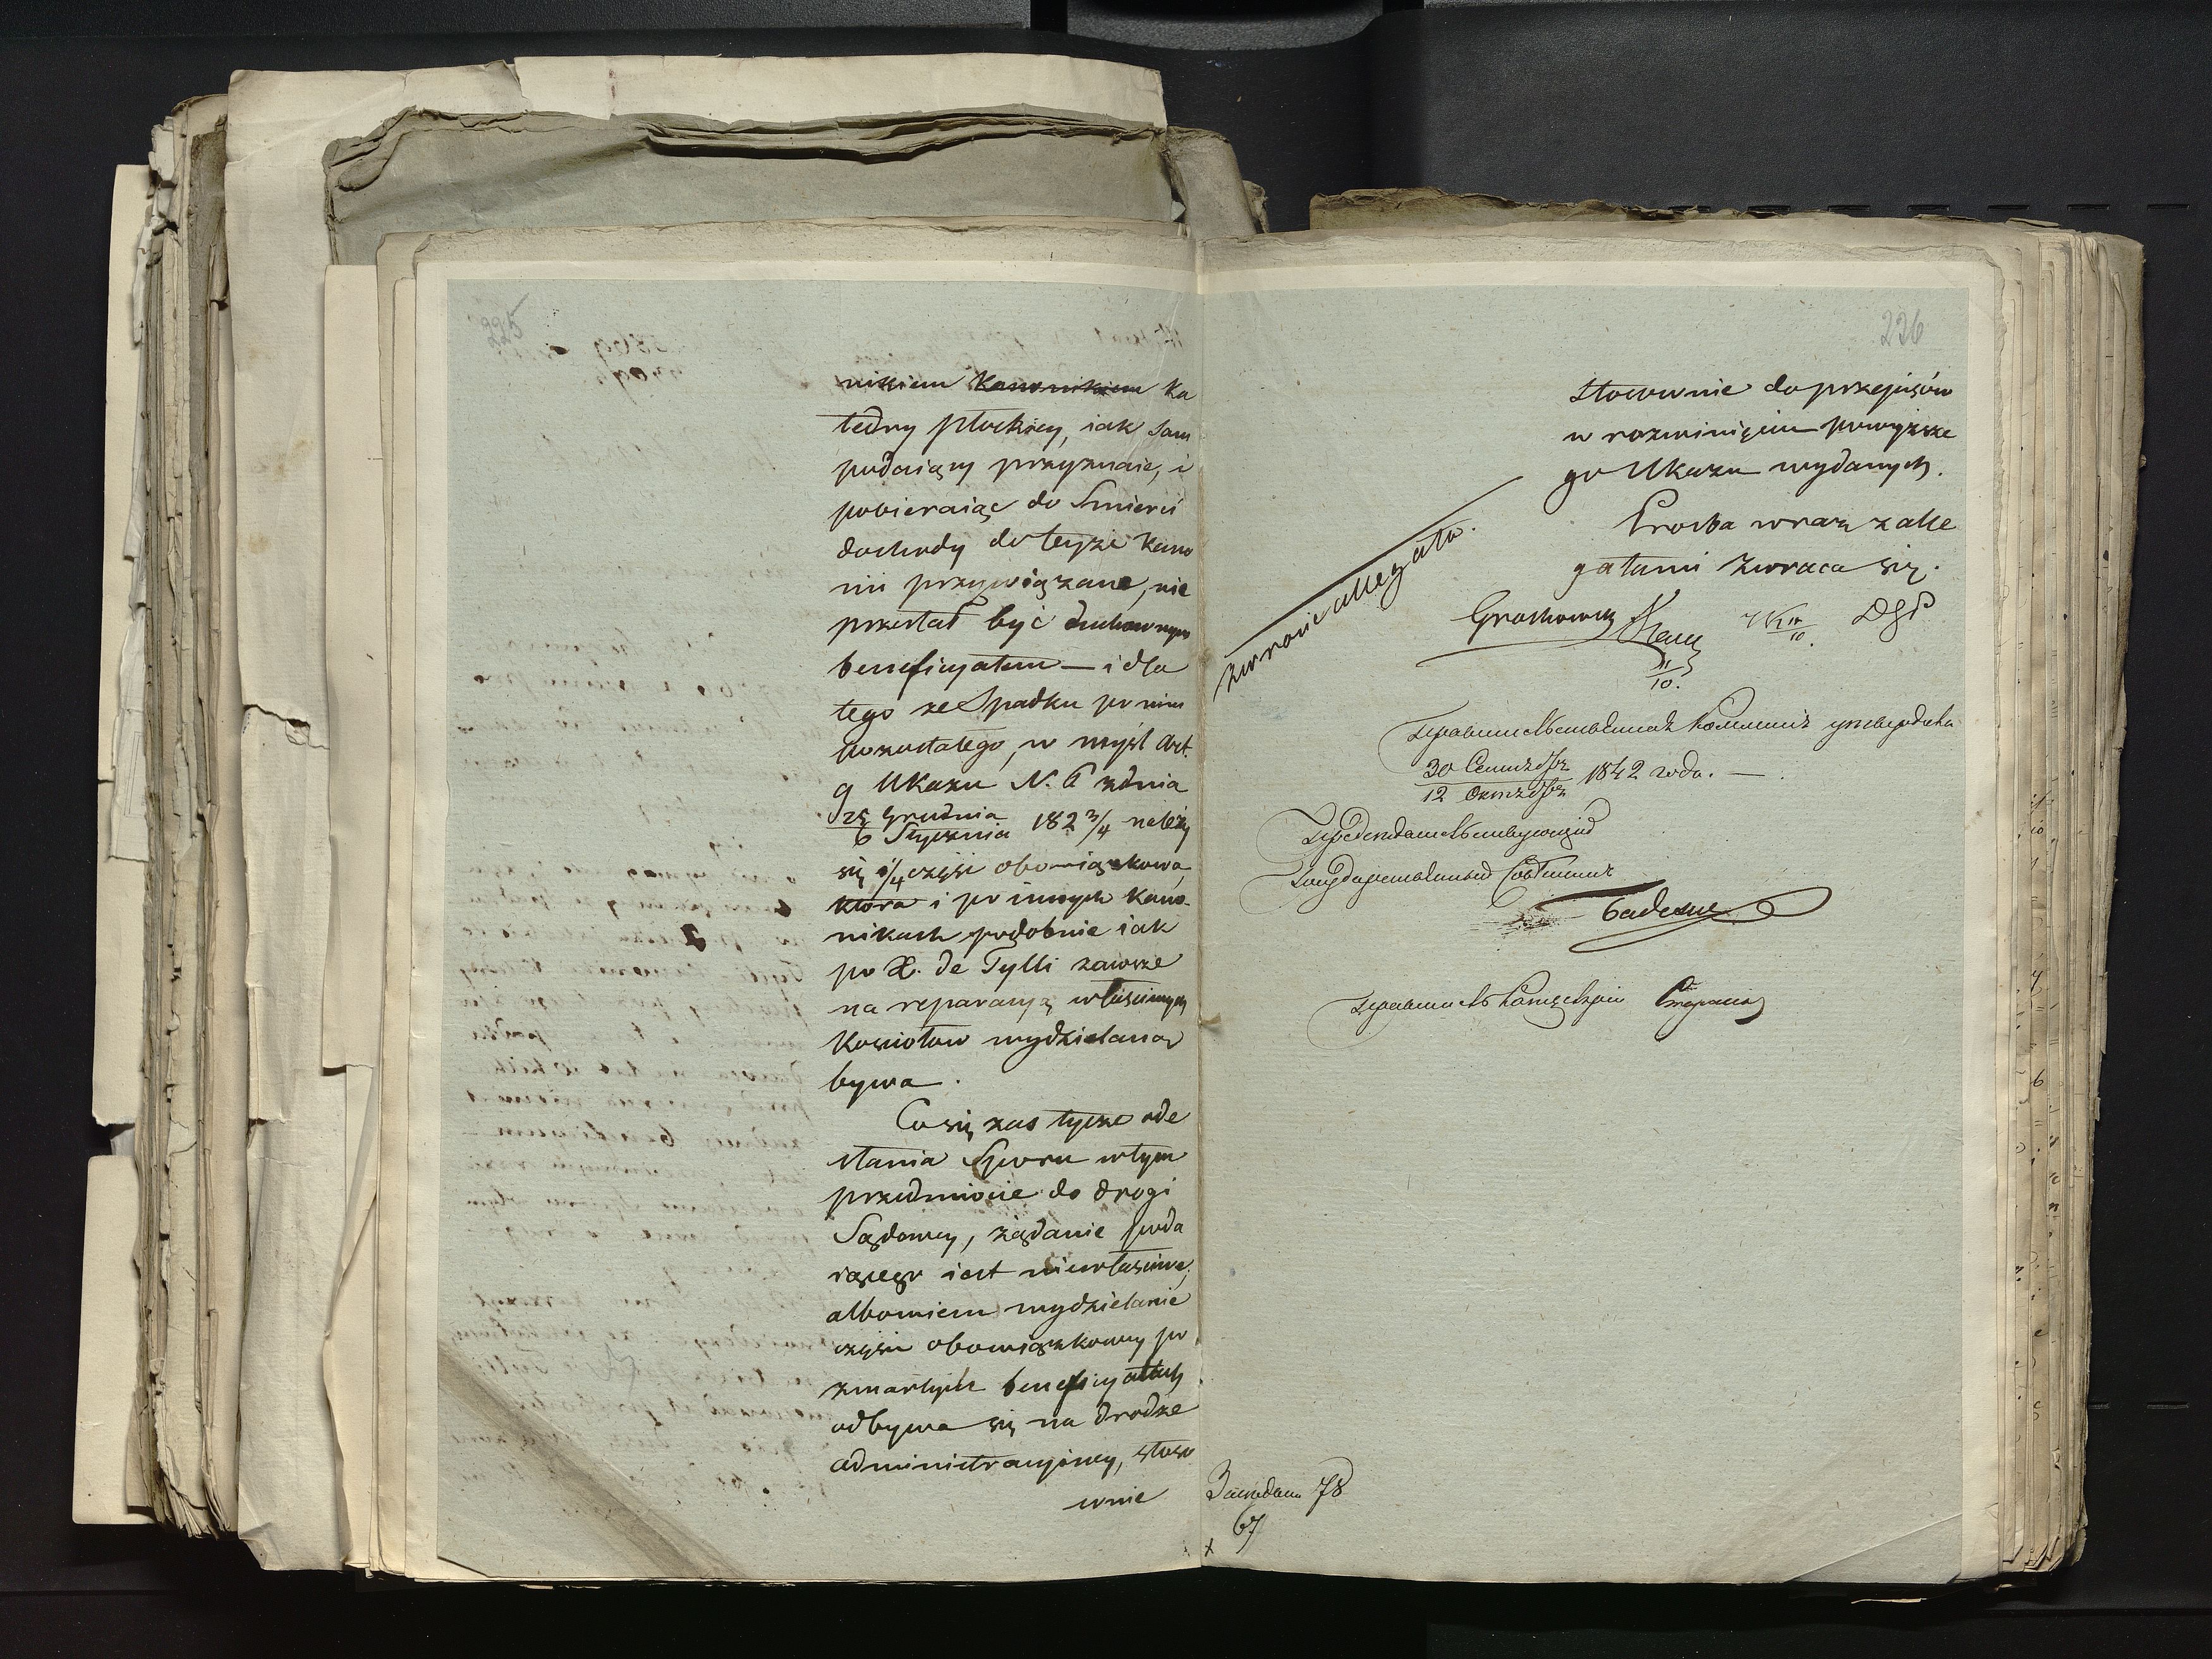 225
nikiem Kanonikiem Ka
tedry płockiey, iak sam
podaiący przyznaie, i
pobieraiąc do Smierci
dochody do teyże kano
nii przywiązane, nie
przestał być duchownym
beneficyatem — i dla
tego ze Spadku po nim
pozostałego, w myśl Art.
9 Ukazu N. 6 zdnia
25 Grudnia
6 Stycznia 182 3/4 należy
się 1/4 część obowiązkowa,
która i po innych Kano-
nikach podobnie iak
po X. de Tylli zawsze
na reparacyą właściwych
Kościołow wydzielaną
bywa.
Co się zas tycze ode
słania Sporu wtym
przedmiocie do drogi
Sądowey, żądanie poda
iącego iest niewłaściwe,
albowiem wydzielanie
części obowiązkowey po
zmarłych beneficyatach
odbywa się na drodze
administracyiney, stoso
wnie
226
Stosownie do przepisów
w rozwinięciu powyższe
go Ukazu wydanych.
Prośba wraz z alle
gatami zwraca się.
zwrócić allegata.
11
10.
Правительственная Коммисія утвердила
30 Сентября
12 Октября 1842 года. —
Председательствующій
Государственный Совѣтникъ
Правитель Канцеляріи
78
67
x